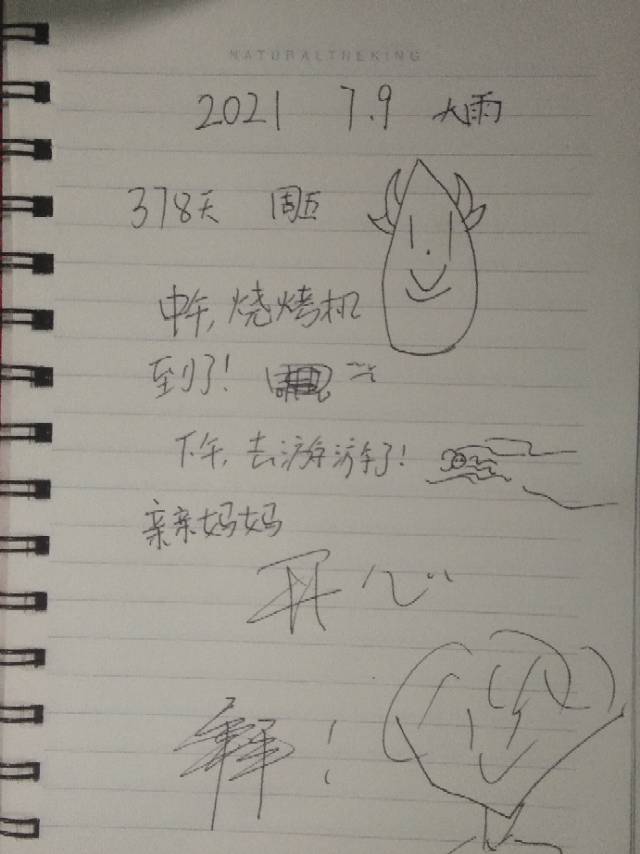 NATURALTHEKING
2021 7.9 大雨
378天 周五
中午,烧烤机
到了!
下午,去游游了!
亲亲妈妈
开心
拜!